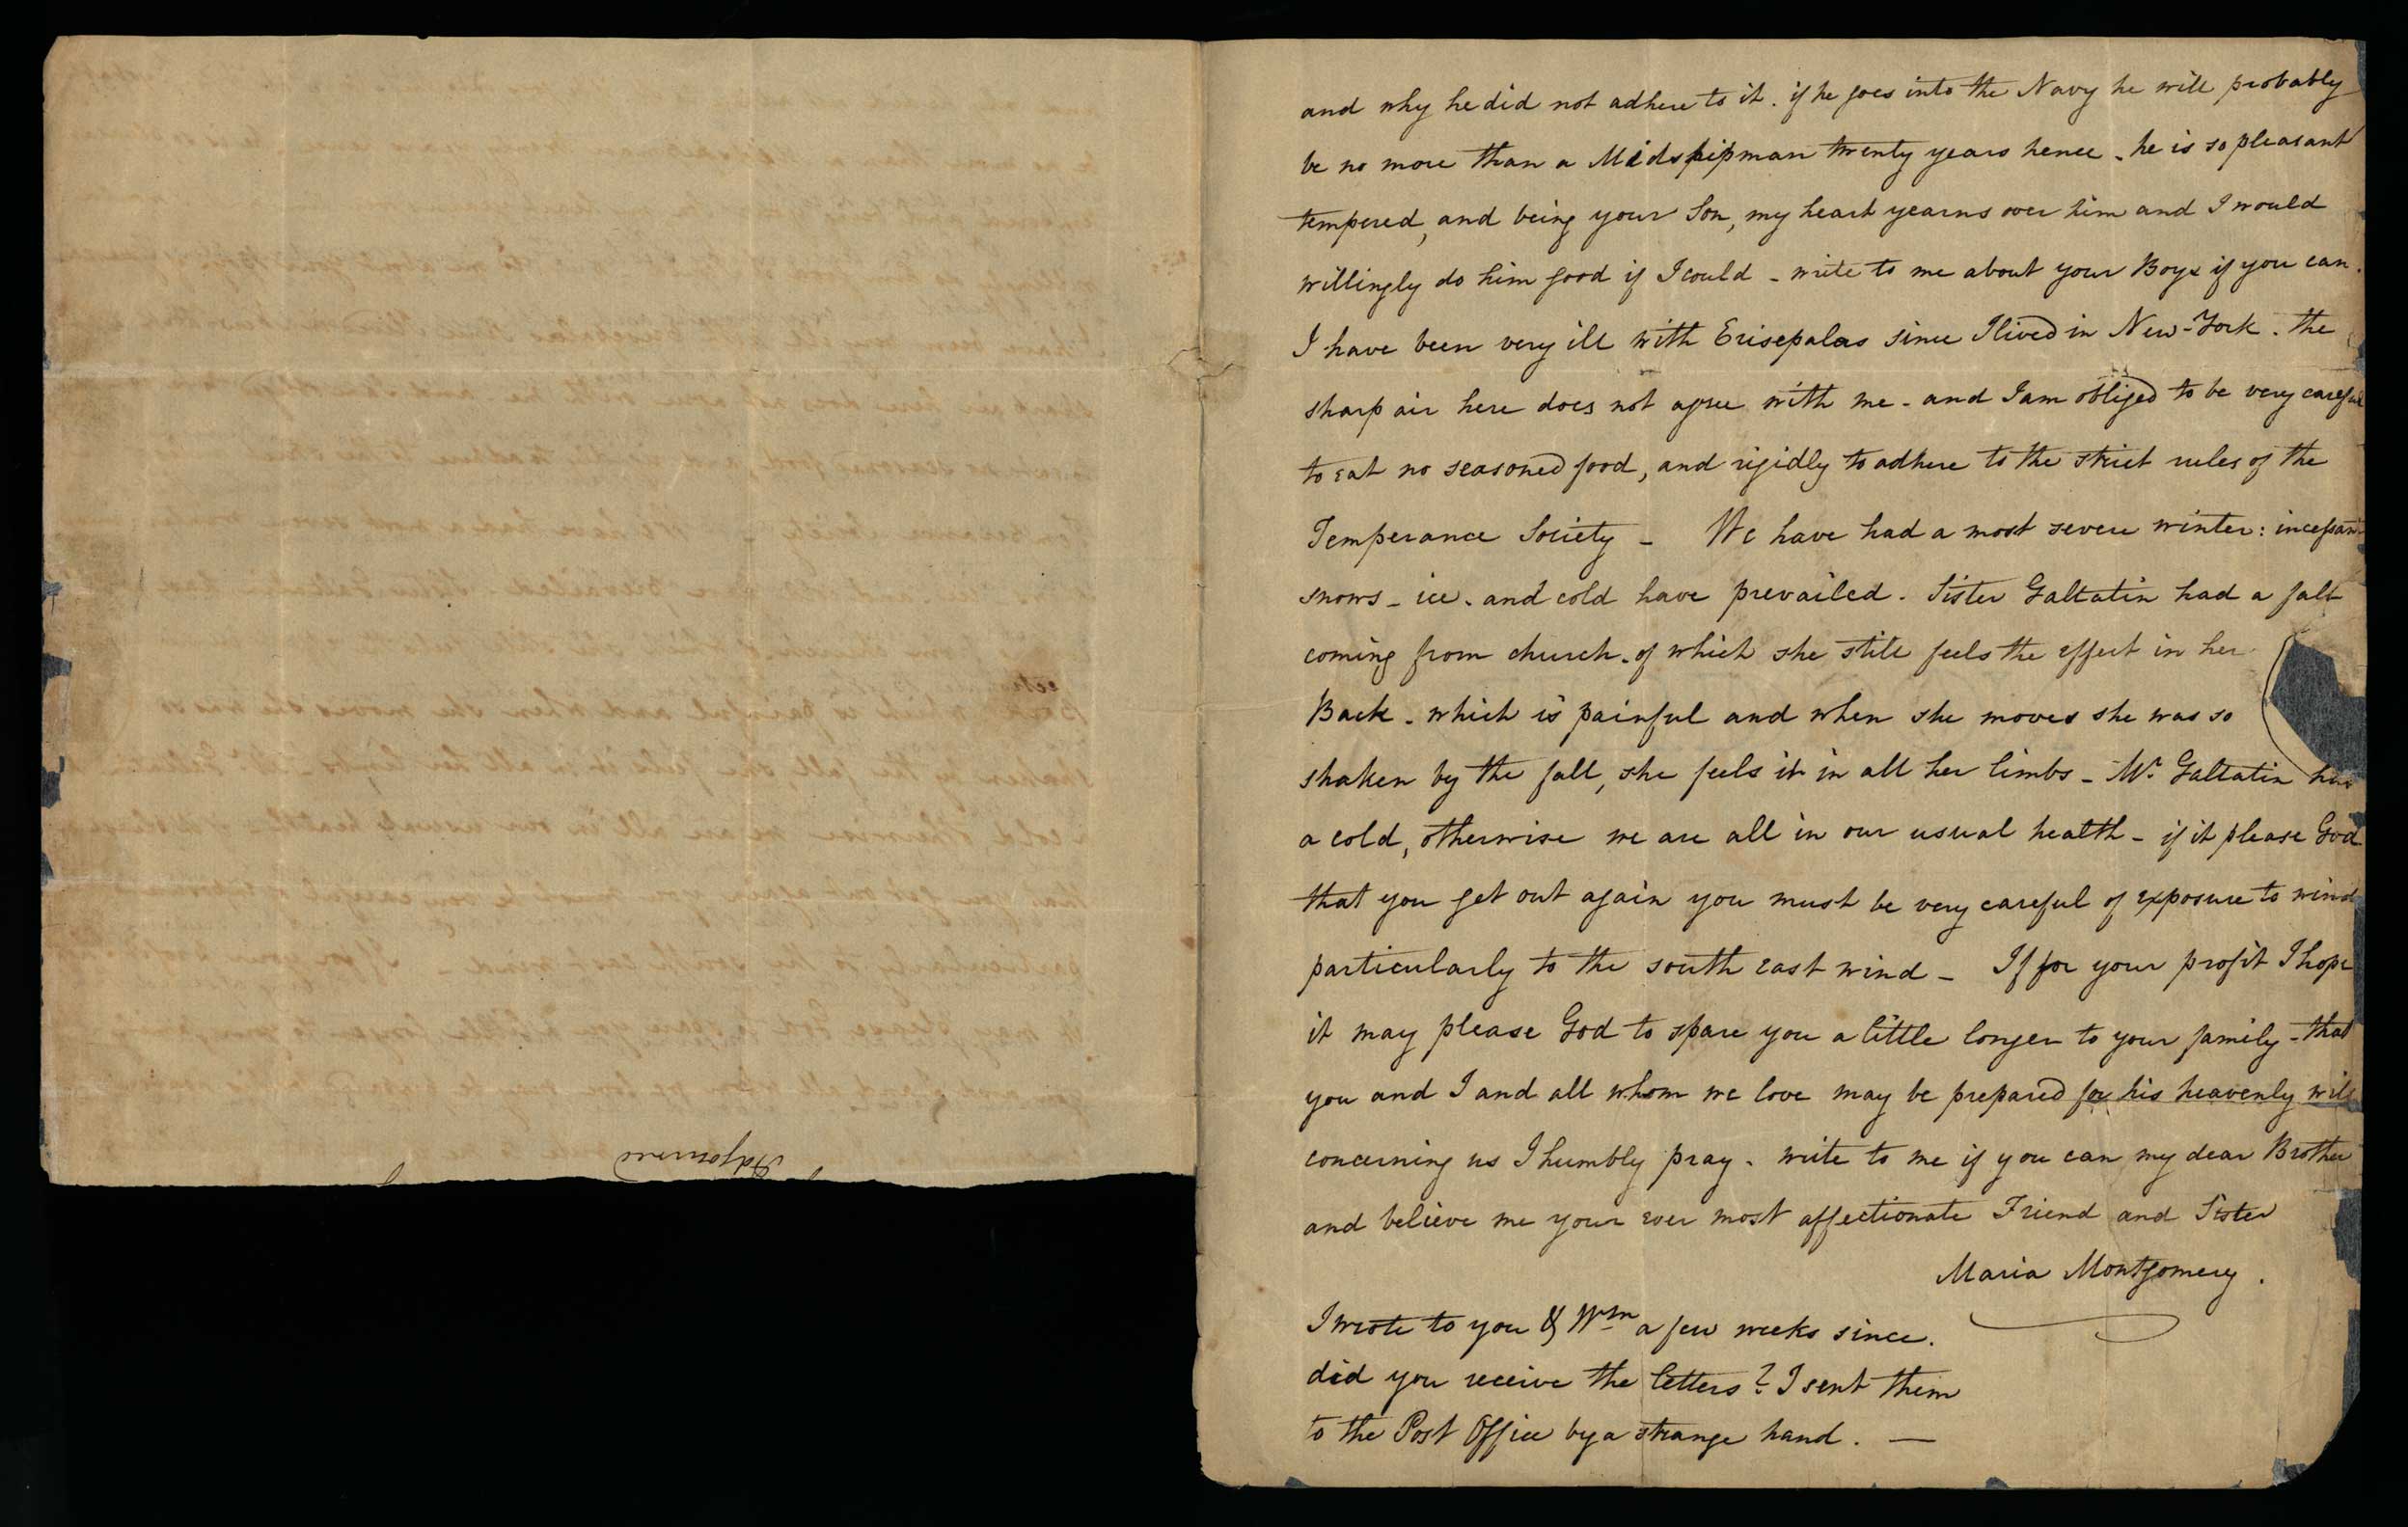 and why he did not adhere to it. if he goes into the Navy he will probably
be no more than a Midshipman twenty years hence - he is so pleasant
tempered, and being your Son, my heart yearns over him and I would
willingly do him good if I could - write to me about your Boys if you can.
I have been very ill with Erisepalas since I lived in New-York. the
sharp air here does not agree with me - and I am obliged to be very careful
to eat no seasoned food, and rigidly to adhere to the strict rules of the
Temperance Society - We have had a most severe winter: incessant
snows - ice - and cold have prevailed. Sister Gallatin had a fall
coming from church - of which she still feels the effect in her
Back - which is painful and when she moves she was so
shaken by the fall, she feels it in all her limbs - Mr. Gallatin has
a cold, otherwise we are all in our usual health - if it please God
that you get out again you must be very careful of exposure to wind
particularly to the south east wind - If for your profit I hope
it may please God to spare you a little longer to your family - that
you and I and all whom we love may be prepared for his heavenly will
concerning us I humbly pray - write to me if you can my dear Brother
and believe me your ever most affectionate Friend and Sister
Maria Montgomery.
I wrote to you & Wm a few weeks since.
did you receive the letters? I sent them
to the Post Office by a strange hand. —
Adjourned